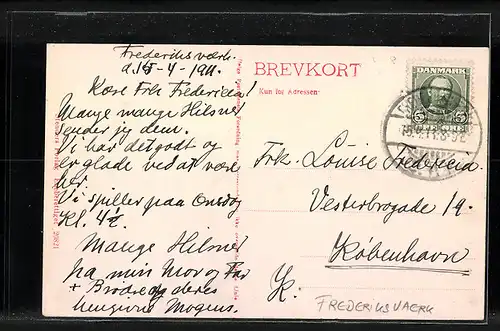 Frederiksværk.
d. 15-4-1911.
Kære Frk Fredericia!
Mange mange Hilsner
sender jeg dem.
Vi har det godt og
er glade ved at være
her.
Vi spiller paa Onsdag
Kl. 4½
Mange Hilsner
fra min Mor og Far
+ Brødre og deres
hengivne Mogens.
BREVKORT
Kun for Adressen
DANMARK
5 5
Frk. Louise Fredericia
Vesterbrogade 19.
København
K.
FREDERIKSVAERK